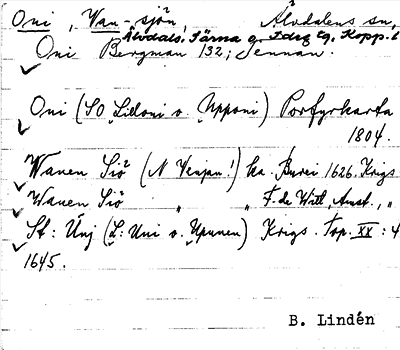 Oni, Wan-sjön, Älvdalens sn,
Älvdals, Särna o. Idre tg, Kopp. l
Oni Bergman 132; Jennan.
Oni (SO Lilloni o. Upponi) Porfyrkarta
1804.
Wanen Siö (N Venjan!) ka. Burei 1626. Krigs
Wanen Siö " " F. de Witt, Amst., "
St: Ünj (L: Uni o. Upunen) Krigs. Top. XX: 4
1645.
B. Lindén